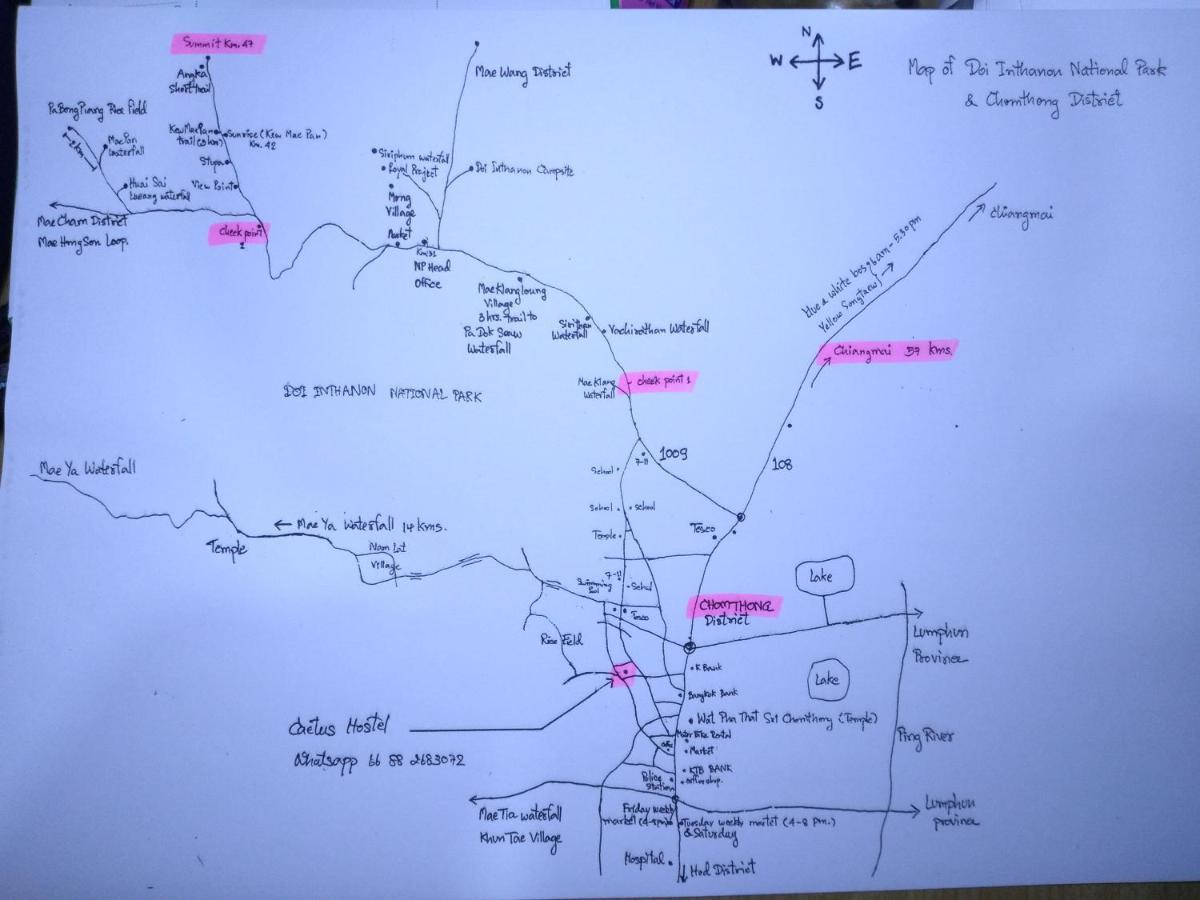 Summit Km. 47
N
W E
S
Map of Doi Inthanon National Park
& Chomthong District
Angka
Short trail
Mae Wang District
Pa Bong Piang Rice Field
2 km
Mae Pan
Waterfall
Kew Mae Pan
trail (3 km)
Sunrise (Kew Mae Pan)
Km. 42
Stupa
View Point
Huai Sai
Lueang waterfall
Siriphum waterfall
Royal Project
Doi Inthanon Campsite
Mong
Village
Market
Mae Cham District
Mae Hong Son Loop.
Check point
2
Km 31
NP Head
Office
Mae Klangloung
Village
3 hrs. trail to
Pa Dok Seaw
Waterfall
Sirithan
Waterfall
Vachirathan Waterfall
Chiangmai
6 am - 5.30 pm
Yellow Songtaew
Chiangmai 57 kms.
Mae Klang
waterfall
Check point 1
DOI INTHANON NATIONAL PARK
1009
108
7-11
School
School
School
Temple
Tesco
Mae Ya Waterfall
← Mae Ya Waterfall 14 kms.
Temple
Nam Lat
Village
7-11
Swimming
Pool
School
Tesco
CHOMTHONG
District
Lake
Lumphun
Province
Rice Field
K Bank
Lake
Bangkok Bank
Wat Pha That Sri Chomthong (Temple)
Motor Bike Rental
Market
Ping River
Cactus Hostel
Whatsapp 66 88 2683072
KTB BANK
Police
Station
Mae Tia waterfall
Khun Tae Village
Friday weekly
market (4-8 pm)
Tuesday weekly market (4-8 pm.)
& Saturday
Lumphun
province
Hospital
Hod District